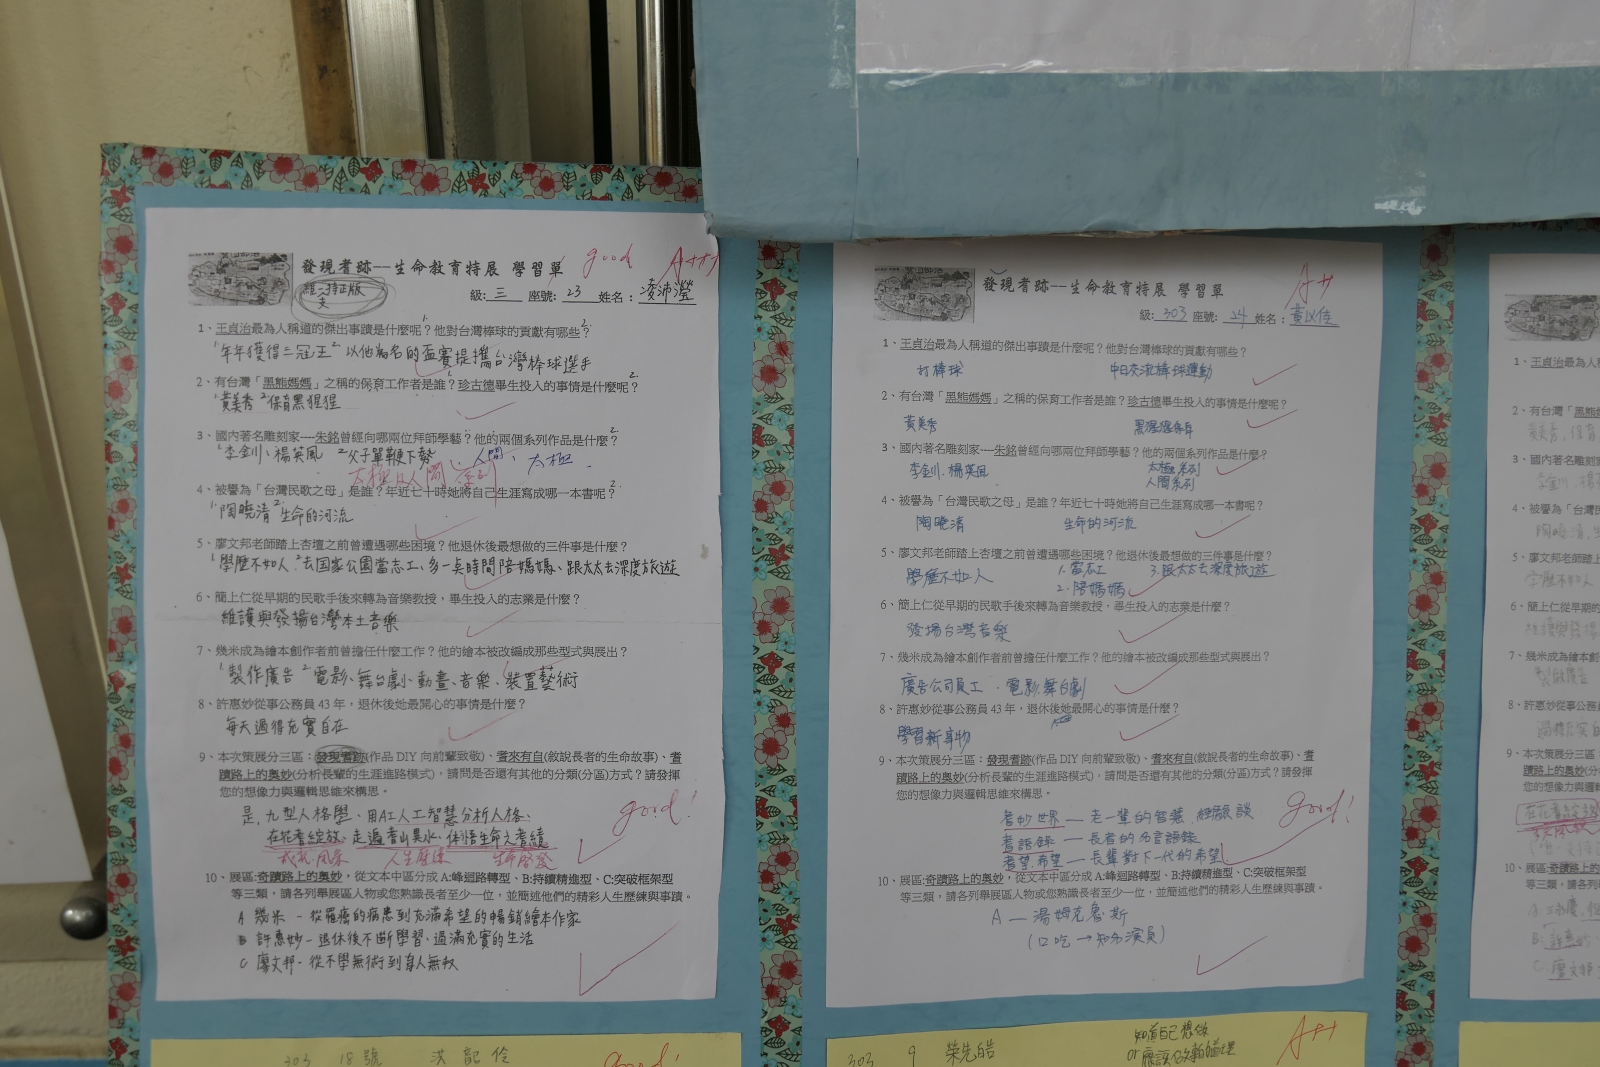 發現耆跡--生命教育特展 學習單
good A+++
級: 三 座號: 23 姓名: 凌沛瀅
1、王貞治最為人稱道的傑出事蹟是什麼呢?他對台灣棒球的貢獻有哪些?
1.年年獲得三冠王 2.以他為名的盃賽提攜台灣棒球選手
2、有台灣「黑熊媽媽」之稱的保育工作者是誰?珍古德畢生投入的事情是什麼呢?
1.黃美秀 2.保育黑猩猩
3、國內著名雕刻家---朱銘曾經向哪兩位拜師學藝?他的兩個系列作品是什麼?
1.李金川、楊英風 2.父子單鞭下勢 人間、太極
太極及人間系列
4、被譽為「台灣民歌之母」是誰?年近七十時她將自己生涯寫成哪一本書呢?
1.陶曉清 2.生命的河流
5、廖文邦老師踏上杏壇之前曾遭遇哪些困境?他退休後最想做的三件事是什麼?
1.學歷不如人 2.去国家公園當志工、多一点時間陪媽媽、跟太太去深度旅遊
6、簡上仁從早期的民歌手後來轉為音樂教授,畢生投入的志業是什麼?
維護與發揚台灣本土音樂
7、幾米成為繪本創作者前曾擔任什麼工作?他的繪本被改編成那些型式與展出?
1.製作廣告 2.電影、舞台劇、動畫、音樂、裝置藝術
8、許惠妙從事公務員 43 年,退休後她最開心的事情是什麼?
每天過得充實自在
9、本次策展分三區:發現耆跡(作品 DIY 向前輩致敬)、耆來有自(敘說長者的生命故事)、耆
蹟路上的奧妙(分析長輩的生涯進路模式),請問是否還有其他的分類(分區)方式?請發揮
您的想像力與邏輯思維來構思。
是,九型人格學、用AI人工智慧分析人格、
good!
在花耆綻放、走遍耆山異水、体悟生命之耆績
10、展區:奇蹟路上的奧妙,從文本中區分成 A:峰迴路轉型、B:持續精進型、C:突破框架型
等三類,請各列舉展區人物或您熟識長者至少一位,並簡述他們的精彩人生歷練與事蹟。
A 幾米 - 從罹癌的病患到充滿希望的暢銷繪本作家
B 許惠妙 - 退休後不斷學習,過滿充實的生活
C 廖文邦 - 從不學無術到育人無數
發現耆跡---生命教育特展 學習單
A++
級: 303 座號: 24 姓名:
1、王貞治最為人稱道的傑出事蹟是什麼呢?他對台灣棒球的貢獻有哪些?
打棒球 中日交流棒球運動
2、有台灣「黑熊媽媽」之稱的保育工作者是誰?珍古德畢生投入的事情是什麼呢?
黃美秀 黑猩猩保育
3、國內著名雕刻家---朱銘曾經向哪兩位拜師學藝?他的兩個系列作品是什麼?
李金川.楊英風 太極系列
人間系列
4、被譽為「台灣民歌之母」是誰?年近七十時她將自己生涯寫成哪一本書呢?
陶曉清 生命的河流
5、廖文邦老師踏上杏壇之前曾遭遇哪些困境?他退休後最想做的三件事是什麼?
學歷不如人 1.當志工 3.跟太太去深度旅遊
2.陪媽媽
6、簡上仁從早期的民歌手後來轉為音樂教授,畢生投入的志業是什麼?
發揚台灣音樂
7、幾米成為繪本創作者前曾擔任什麼工作?他的繪本被改編成那些型式與展出?
廣告公司員工 . 電影.舞台劇
8、許惠妙從事公務員 43 年,退休後她最開心的事情是什麼?
學習新事物
9、本次策展分三區:發現耆跡(作品 DIY 向前輩致敬)、耆來有自(敘說長者的生命故事)、耆
蹟路上的奧妙(分析長輩的生涯進路模式),請問是否還有其他的分類(分區)方式?請發揮
您的想像力與邏輯思維來構思。
good!
耆妙世界 — 老一輩的智慧.經驗談
耆語錄 — 長者的名言語錄
耆望.希望 — 長輩對下一代的希望
10、展區:奇蹟路上的奧妙,從文本中區分成 A:峰迴路轉型、B:持續精進型、C:突破框架型
等三類,請各列舉展區人物或您熟識長者至少一位,並簡述他們的精彩人生歷練與事蹟。
A — 湯姆克魯斯
(口吃→知名演員)
1、王貞治最為人
2、有台灣「黑熊
黃美秀,保育
3、國內著名雕刻
李金川
4、被譽為「台灣
陶曉清
5、廖文邦老師踏上
學歷不如人
6、簡上仁從早期的
7、幾米成為繪本創
8、許惠妙從事公務
9、本次策展分三區
蹟路上的奧妙(分
您的想像力與邏輯
10、展區:奇蹟路上
等三類,請各列
303 18號
good!
303 9 榮先皓
知道自己想做
A++